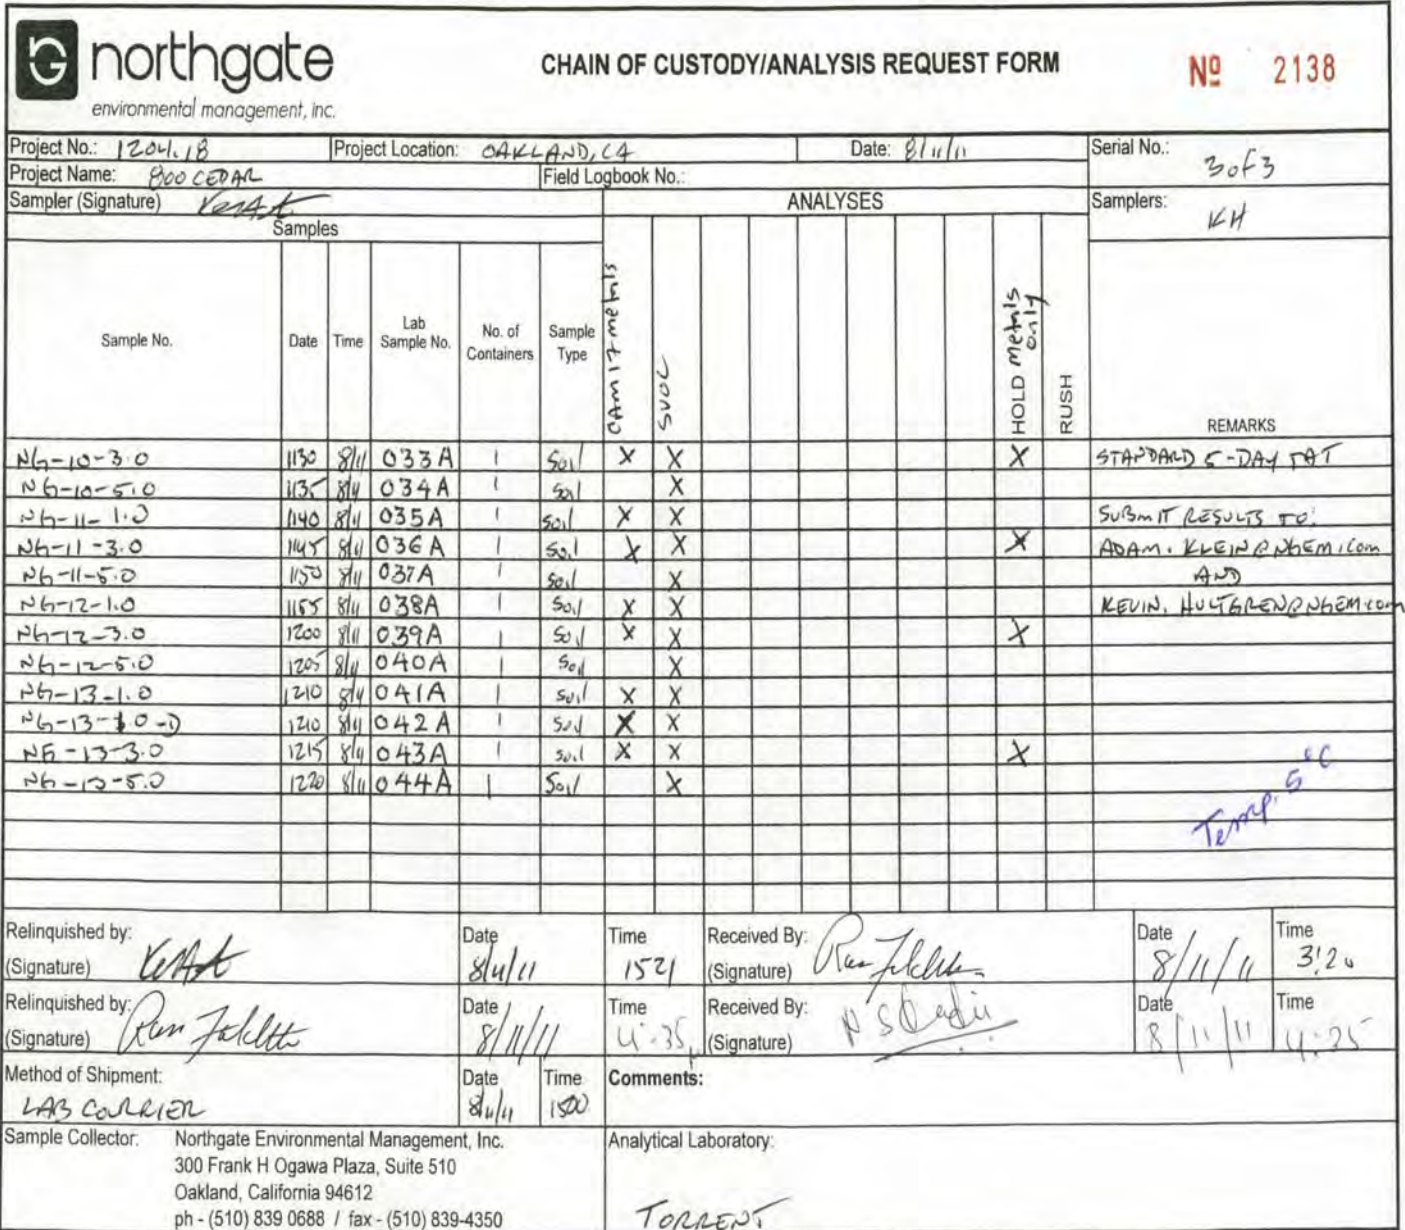 northgate
environmental management, inc.
CHAIN OF CUSTODY/ANALYSIS REQUEST FORM
Nº 2138
Project No.: 1204.18 Project Location: OAKLAND, CA Date: 8/11/11 Serial No.: 3 of 3
Project Name: 800 CEDAR Field Logbook No.:
Sampler (Signature) ANALYSES Samplers: KH
Samples
Sample No. Date Time Lab Sample No. No. of Containers Sample Type CAM 17 metals SVOC HOLD metals only RUSH REMARKS
NG-10-3.0 1130 8/11 033A 1 Soil X X X STANDARD 5-DAY TAT
NG-10-5.0 1135 8/11 034A 1 Soil X
NG-11-1.0 1140 8/11 035A 1 Soil X X SUBMIT RESULTS TO:
NG-11-3.0 1145 8/11 036A 1 Soil X X X ADAM.KLEIN@NGEM.com
NG-11-5.0 1150 8/11 037A 1 Soil X AND
NG-12-1.0 1155 8/11 038A 1 Soil X X KEVIN.HULTGREN@NGEM.com
NG-12-3.0 1200 8/11 039A 1 Soil X X X
NG-12-5.0 1205 8/11 040A 1 Soil X
NG-13-1.0 1210 8/11 041A 1 Soil X X
NG-13-1.0-D 1210 8/11 042A 1 Soil X X
NG-13-3.0 1215 8/11 043A 1 Soil X X X
NG-13-5.0 1220 8/11 044A 1 Soil X
Temp. 5°C
Relinquished by: Date Time Received By: Date Time
(Signature) 8/11/11 1521 (Signature) 8/11/11 3:20
Relinquished by: Date Time Received By: Date Time
(Signature) 8/11/11 4:35 (Signature) 8/11/11 4:35
Method of Shipment: Date Time Comments:
LAB COURRIER 8/11/11 1500
Sample Collector: Northgate Environmental Management, Inc. Analytical Laboratory:
300 Frank H Ogawa Plaza, Suite 510
Oakland, California 94612
ph - (510) 839 0688 / fax - (510) 839-4350 TORRENT